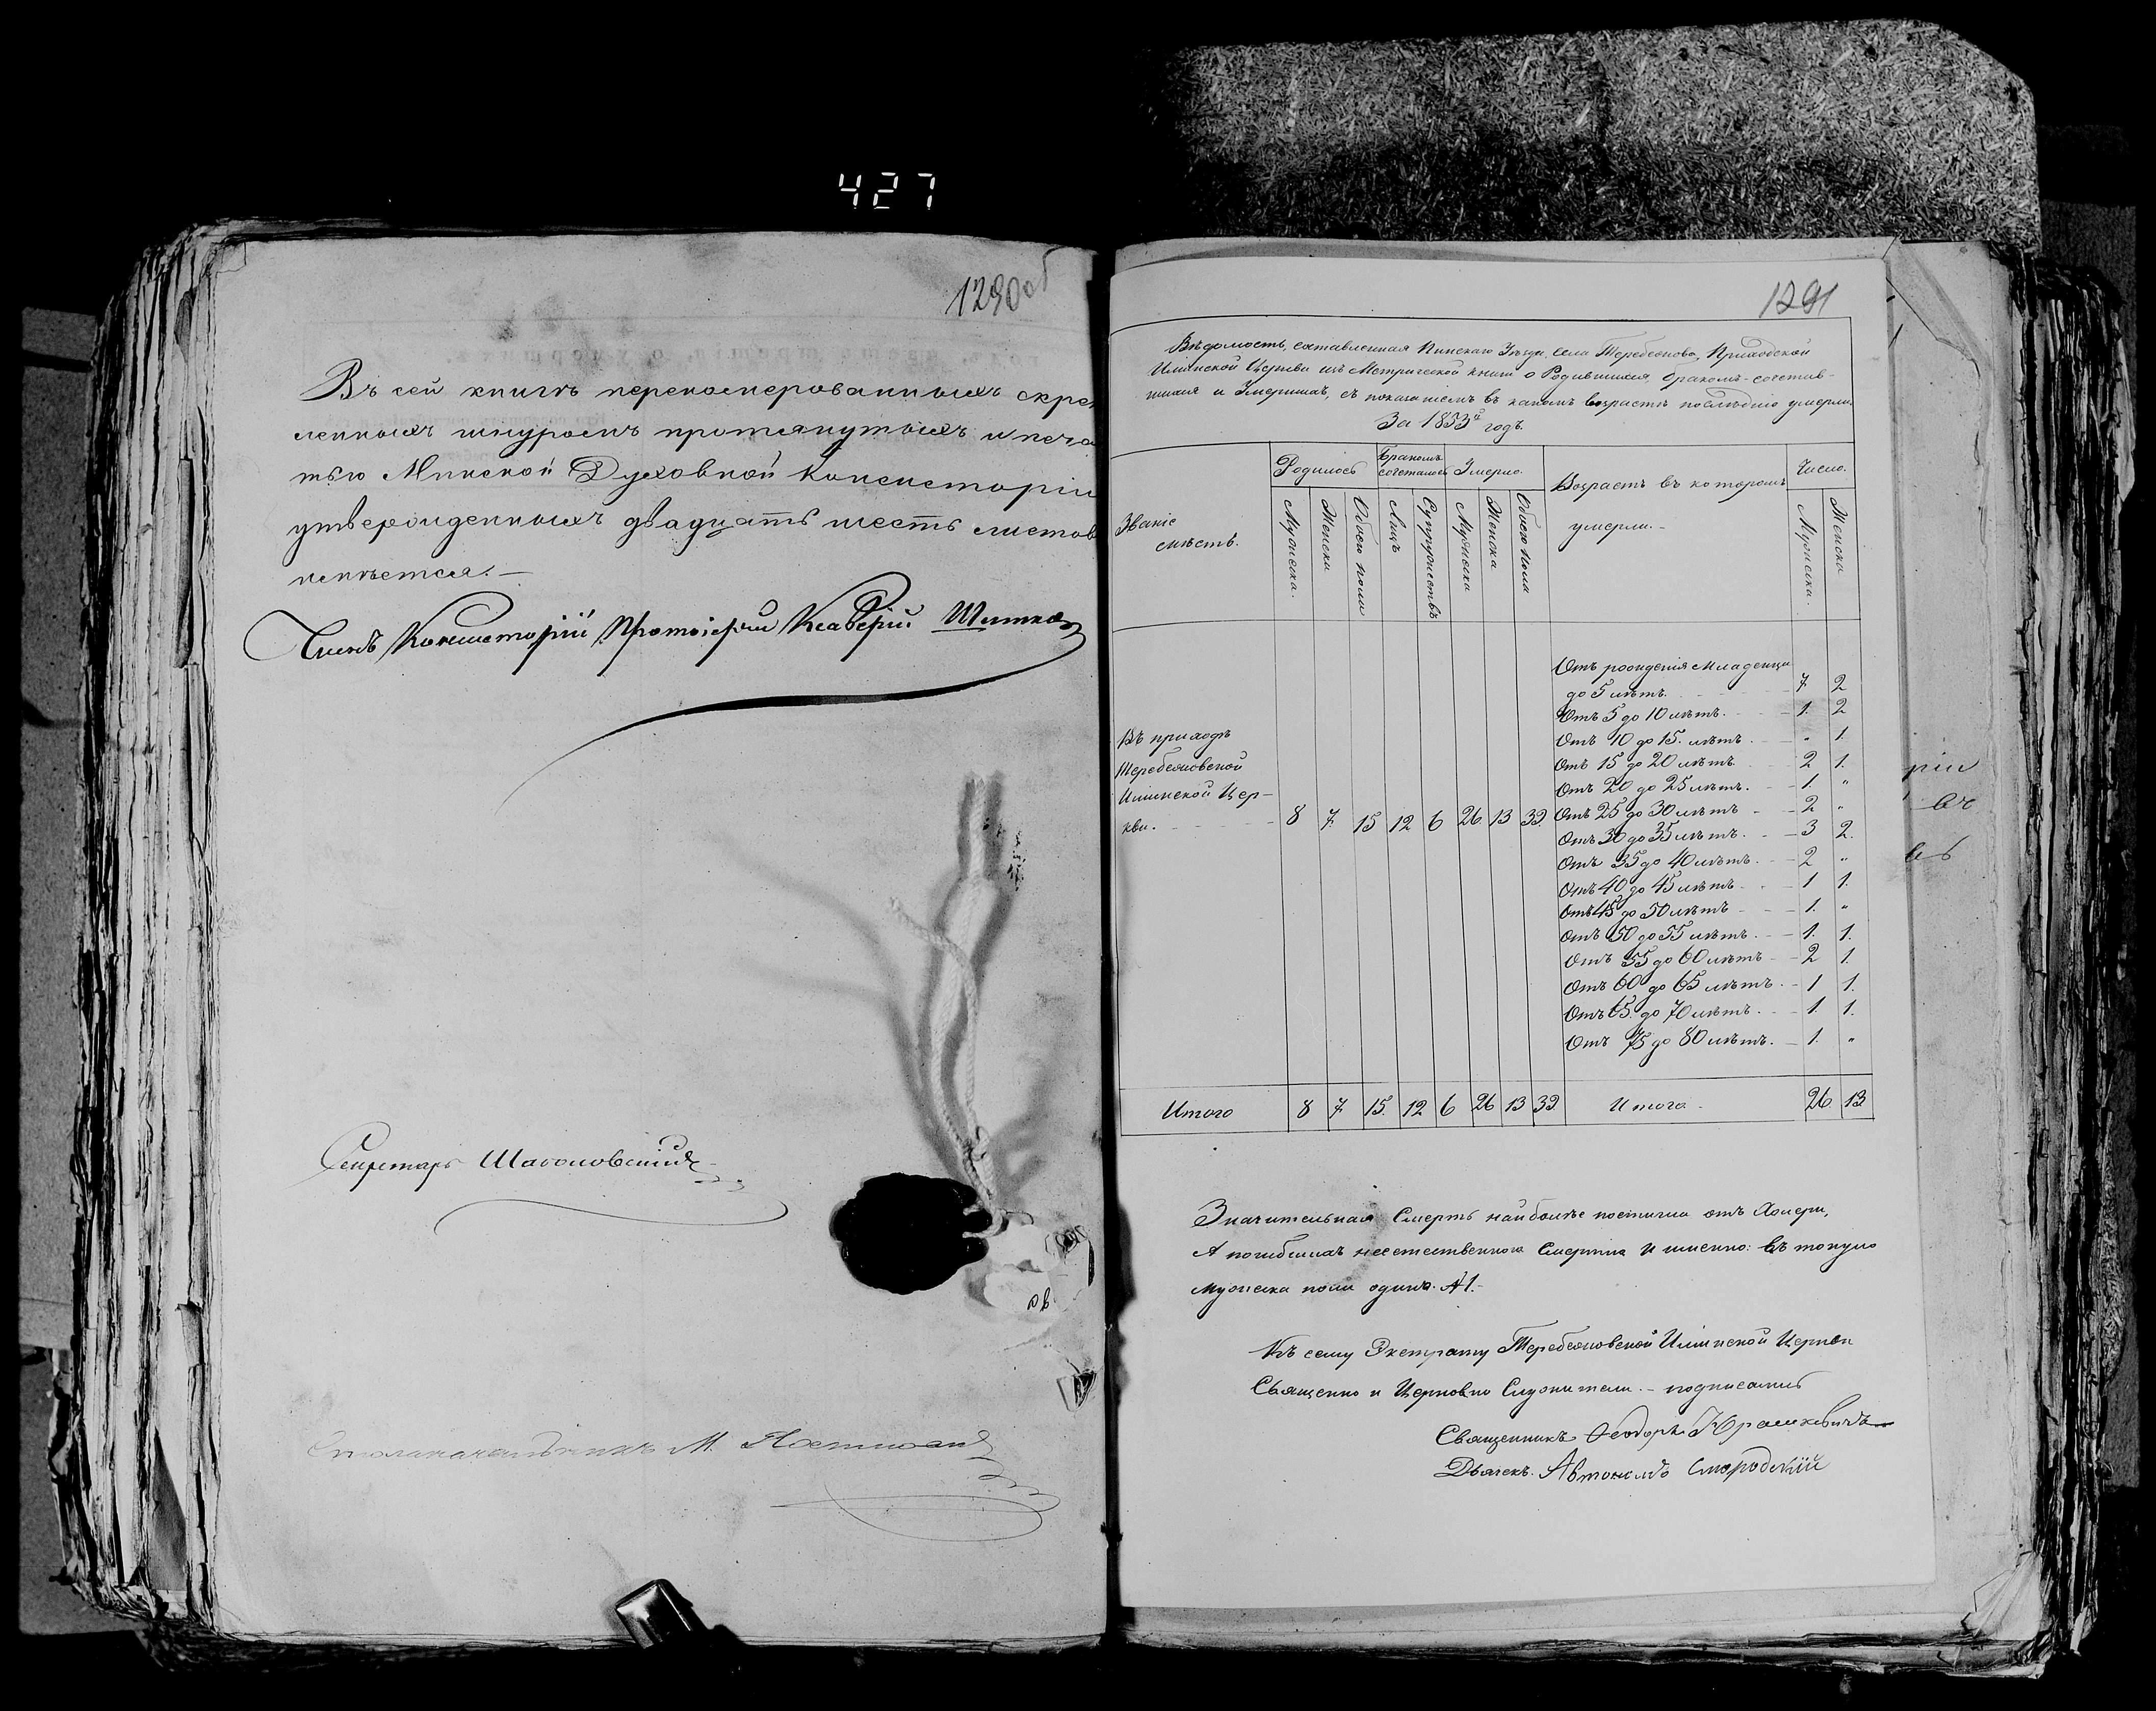 427
1290об
Въ сей книгѣ переномерованныхъ скре
ленныхъ шнуромъ протянутыхъ и печа
тью Минской Духовной Консисторіи
утвержденныхъ двадцать шесть листовъ
имѣется. —
Членъ Консисторіи Протоіерей Ксаверій
Секретарь
Столоначальникъ М.
1291
Вѣдомость, составленная Пинскаго Уѣзда, села Теребежова, Приходской
Ильинской Церкви изъ Метрической книги о Родившихся, бракомъ-сочетав-
шихся и Умершихъ, съ показаніемъ въ какомъ возрастѣ послѣднію умерли
За 1853й годъ.
Званіе мѣстъ.
Родилось
Бракомъ сочеталось
Умерло.
Возрастъ въ которомъ умерли. -
Число.
Мужеска.
Женска
Обоего пола
Лицъ
Супружествъ
Мужеска
Женска
Обоего пола
Мужеска.
Женска
Отъ рожденія Младенцы
до 5 лѣтъ. 7. 2
Отъ 5 до 10 лѣтъ. 1. 2
Отъ 10 до 15. лѣтъ. " 1.
Отъ 15 до 20 лѣтъ. 2 1.
Отъ 20 до 25 лѣтъ. 1. "
Отъ 25 до 30 лѣтъ 2 "
Отъ 30 до 35 лѣтъ. 3 2.
Отъ 35 до 40 лѣтъ. 2 "
Отъ 40 до 45 лѣтъ. 1 1.
Отъ 45 до 50 лѣтъ 1. "
Отъ 50 до 55 лѣтъ. 1. 1.
Отъ 55 до 60 лѣтъ 2 1.
Отъ 60 до 65 лѣтъ. 1 1.
Отъ 65. до 70 лѣтъ. 1. 1.
Отъ 75 до 80 лѣтъ. 1. "
Въ приходѣ
Теребежовской
Ильинской Цер-
кви. 8 7. 15 12 6 26. 13 39.
Итого 8 7. 15. 12 6 26 13 39 Итого. 26. 13.
Значительная Смерть наиболѣе постигла отъ Холеры,
А погибшихъ неестественною Смертію И именно: въ
мужеска пола одинъ. №1.-
Къ сему Экстракту Теребежовской Ильинской Церкви
Священно и Церковно Служители. - подписались
Священникъ Ѳеодоръ Юрашкевичъ
Дьячекъ. Автономъ Смородскій
ріи
въ